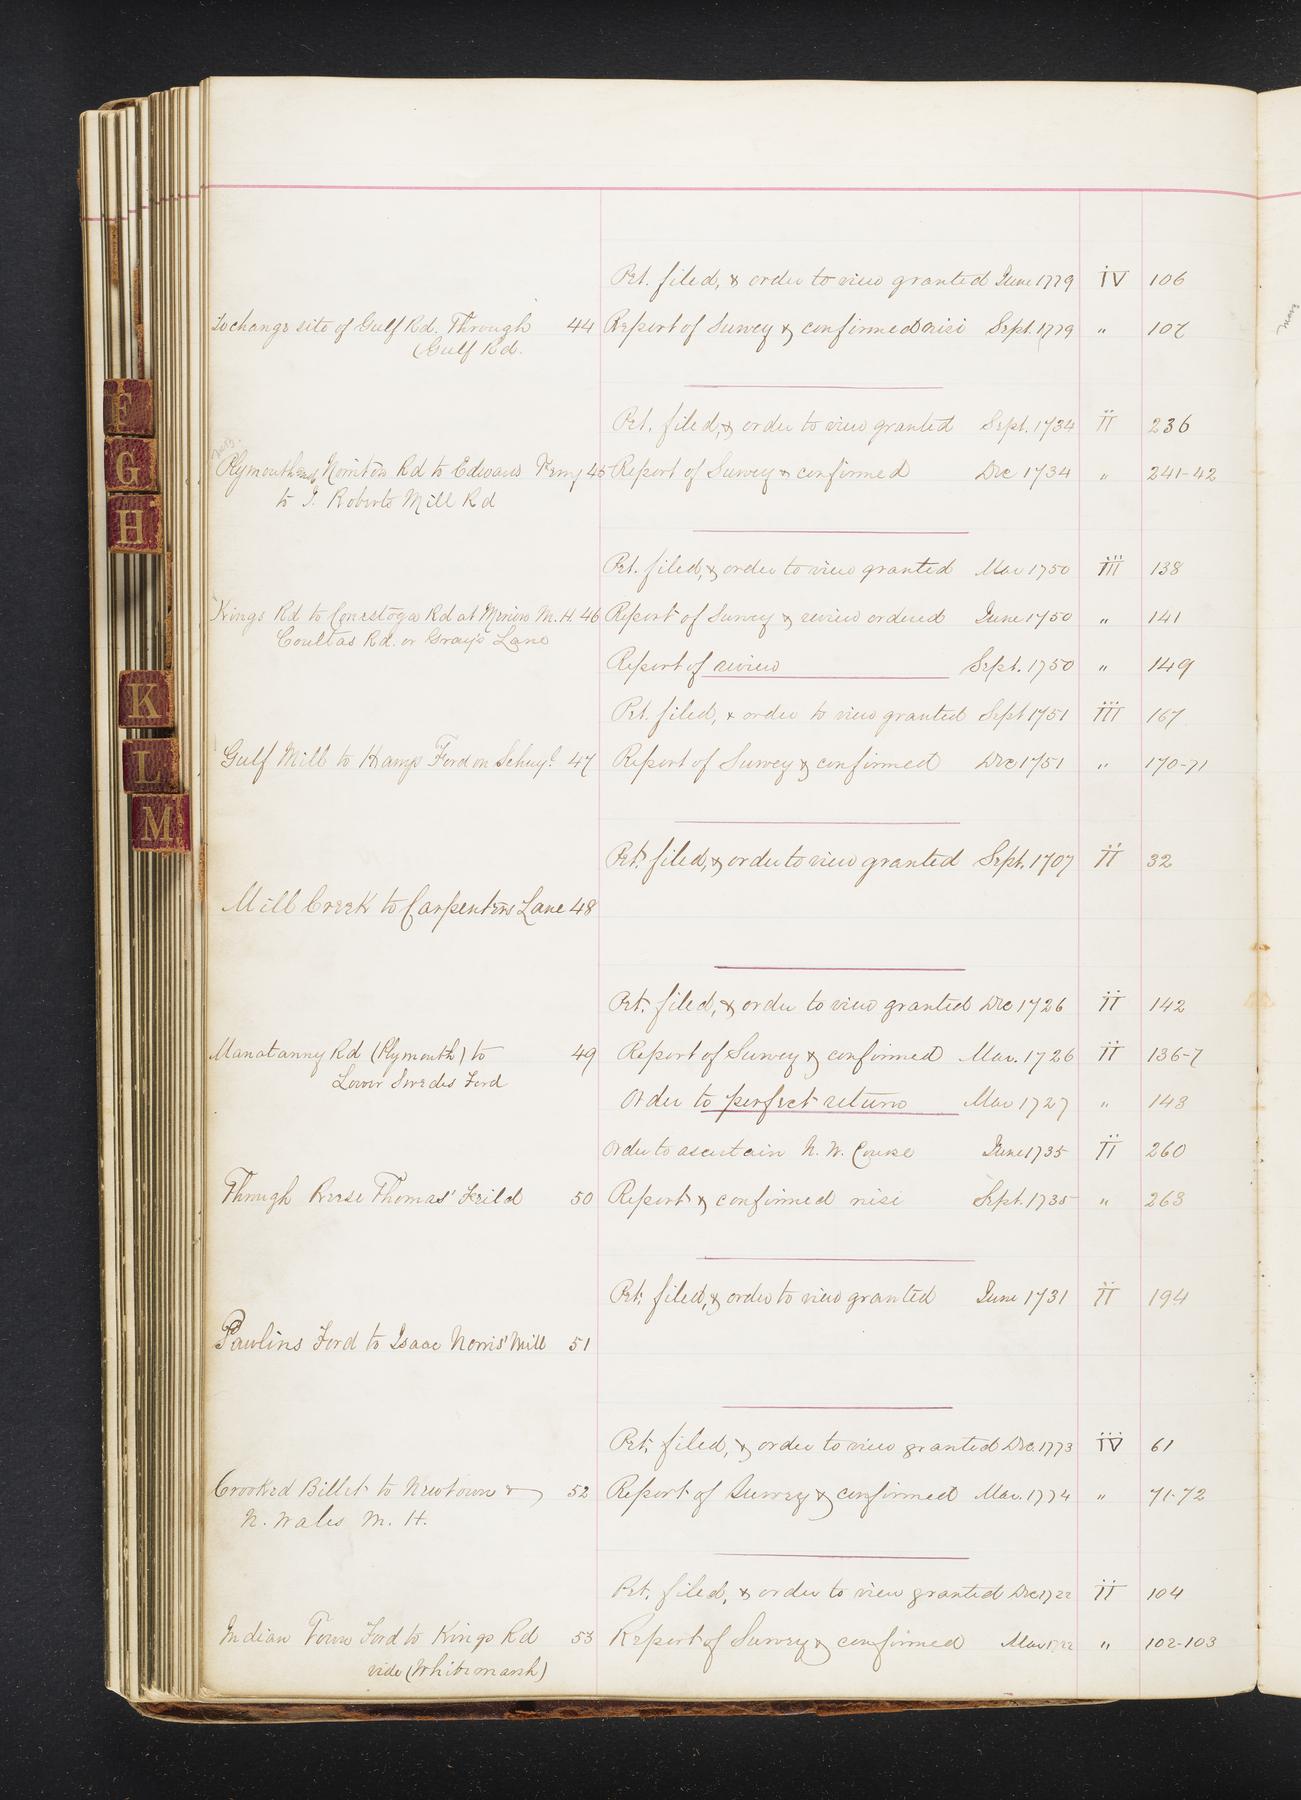 Pet. filed, & order to view granted June 1779 IV 106
To change site of Gulf Rd. Through 44 Report of Survey & confirmed nisi Sept. 1779 " 107
Gulf Rd.
Pet. filed, & order to view granted Sept. 1734 II 236
Plymouth and Norriton Rd to Edwards Ferry 45 Report of Survey & confirmed Dec 1734 " 241-42
to J. Roberts Mill Rd
Pet. filed, & order to view granted Mar 1750 III 138
Kings Rd to Conestoga Rd at Merion M. H. 46 Report of Survey & review ordered June 1750 " 141
Coultas Rd. or Gray's Lane
Report of review Sept. 1750 " 149
Pet. filed, & order to view granted Sept 1751 III 167
Gulf Mill to Hamps Ford on Schuyl. 47 Report of Survey & confirmed Dec 1751 " 170-71
Pet. filed, & order to view granted Sept. 1707 II 32
Mill Creek to Carpenters Lane 48
Pet. filed, & order to view granted Dec 1726 II 142
Manatanny Rd (Plymouth) to 49 Report of Survey & confirmed Mar. 1726 II 136-7
Lower Swedes Ford
Order to perfect return Mar 1727 " 143
Order to ascertain N. W. Course June 1735 II 260
Through Reese Thomas' Feild 50 Report & confirmed nisi Sept. 1735 " 263
Pet. filed, & order to view granted June 1731 II 194
Pawlins Ford to Isaac Norris' Mill 51
Pet. filed, & order to view granted Dec. 1773 IV 61
Crooked Billet to Newtown & 52 Report of Survey & confirmed Mar. 1774 " 71-72
N. Wales M. H.
Pet. filed, & order to view granted Dec 1722 II 104
Indian Town Ford to Kings Rd 53 Report of Survey & confirmed Mar 1722 " 102-103
vide (Whitemarsh)
F
G
H
K
L
M